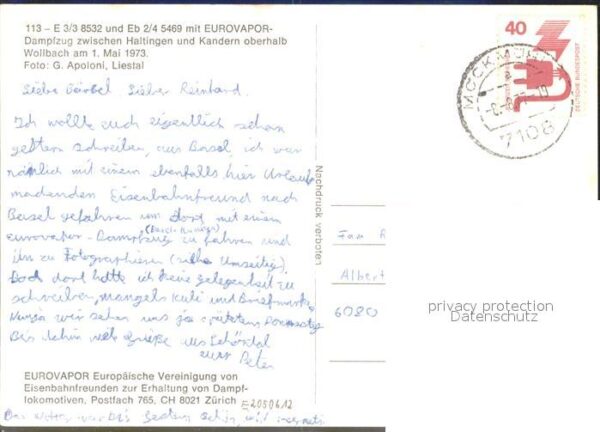 113 – E 3/3 8532 und Eb 2/4 5469 mit EUROVAPOR-
Dampfzug zwischen Haltingen und Kandern oberhalb
Wollbach am 1. Mai 1973.
Foto: G. Apoloni, Liestal
Liebe Bärbel, Lieber Reinhard.
Ich wollte euch eigentlich schon
gestern schreiben, aus Basel, ich war
nämlich mit einem ebenfalls hier Urlaub
machenden Eisenbahnfreund nach
Basel gefahren um dort mit einem
eurovapor-Dampfzug zu fahren und
ihn zu Fotographieren (siehe Umseitig).
Doch dort hatte ich keine gelegenheit zu
schreiben, mangels Kuli und Briefmarke
wir sehen uns ja spätestens Donnerstag
Bis dahin Grüße aus
euer Peter
EUROVAPOR Europäische Vereinigung von
Eisenbahnfreunden zur Erhaltung von Dampf-
lokomotiven, Postfach 765, CH 8021 Zürich
E2050612
Das war bis gestern schön,
Nachdruck verboten
40
DEUTSCHE BUNDESPOST
7108
Albert
6080
privacy protection
Datenschutz